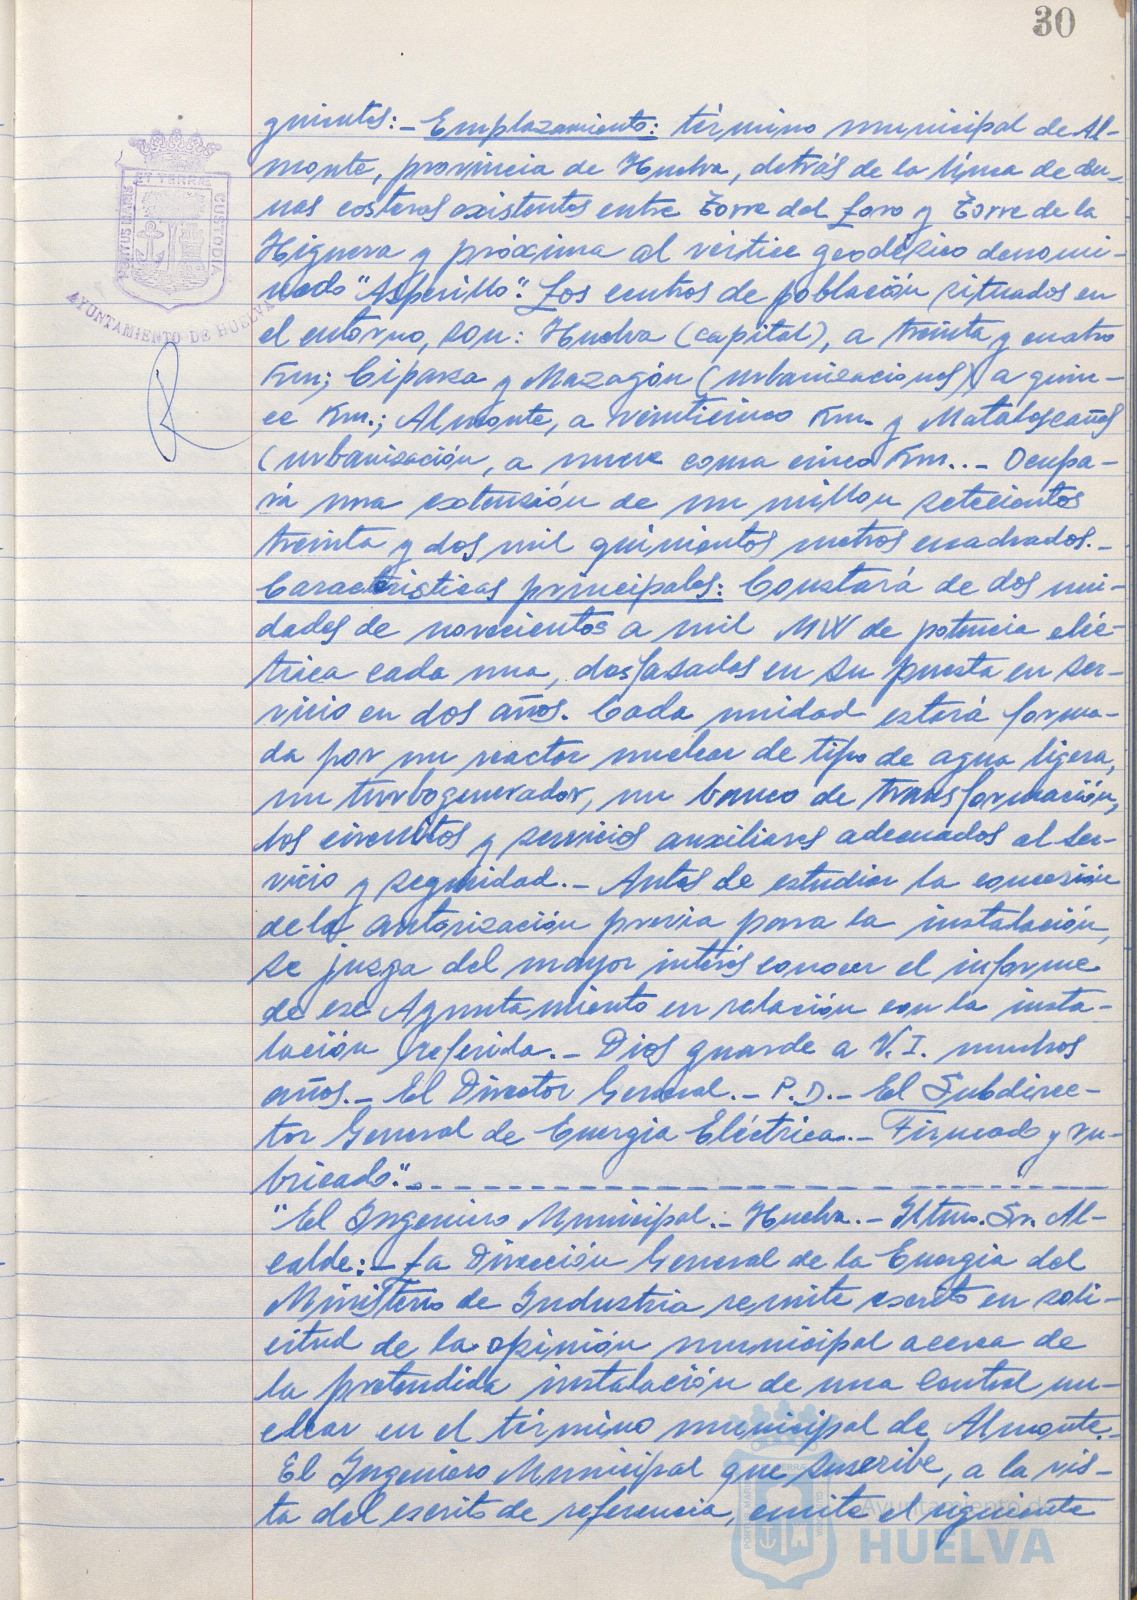 30
guientes:- Emplazamiento: término municipal de Al-
monte, provincia de Huelva, detrás de la línea de du-
nas costeras existentes entre Torre del Loro y Torre de la
Higuera y próxima al vértice geodésico denomi-
nado "Asperillo". Los centros de población situados en
el entorno, son: Huelva (capital), a treinta y cuatro
Km; Ciparsa y Mazagón (urbanizaciones) a quin-
ce Km.; Almonte, a veinticinco Km. y Matalascañas
(urbanización, a nueve coma cinco Km..- Ocupa-
rá una extensión de un millon setecientos
treinta y dos mil quinientos metros cuadrados.-
Caracteristicas principales: Constará de dos uni-
dades de novecientos a mil MW de potencia eléc-
trica cada una, desfasadas en su puesta en ser-
vicio en dos años. Cada unidad estará forma-
da por un reactor nuclear de tipo de agua ligera,
un turbogenerador, un banco de transformación,
los circuitos y servicios auxiliares adecuados al ser-
vicio y seguridad.- Antes de estudiar la concesión
de la autorización previa para la instalación,
se juzga del mayor interés conocer el informe
de ese Ayuntamiento en relación con la insta-
lación referida.- Dios guarde a V.I. muchos
años.- El Director General.- P.D.- El Subdirec-
tor General de Energia Eléctrica..- Firmado y ru-
bricado".
"El Ingeniero Municipal.- Huelva.- Iltmo. Sr. Al-
calde:- La Dirección General de la Energia del
Ministerio de Industria remite escrito en soli-
citud de la opinión municipal acerca de
la pretendida instalación de una Central nu-
clear en el término municipal de Almonte.-
El Ingeniero Municipal que suscribe, a la vis-
ta del escrito de referencia, emite el siguiente
PORTUS MARIS
ET TERRAE
CUSTODIA
AYUNTAMIENTO DE HUELVA
Ayuntamiento de
HUELVA